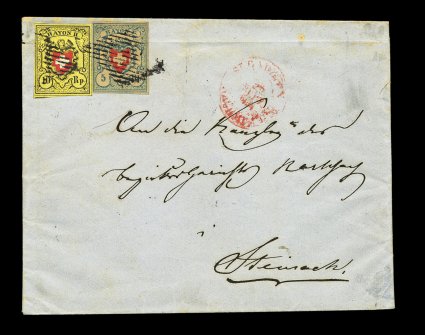 RAYON II.
10 Rp.
RAYON I.
5
An die Kanzley des
Bezirksgerichts Rorschach
in
Steinach.